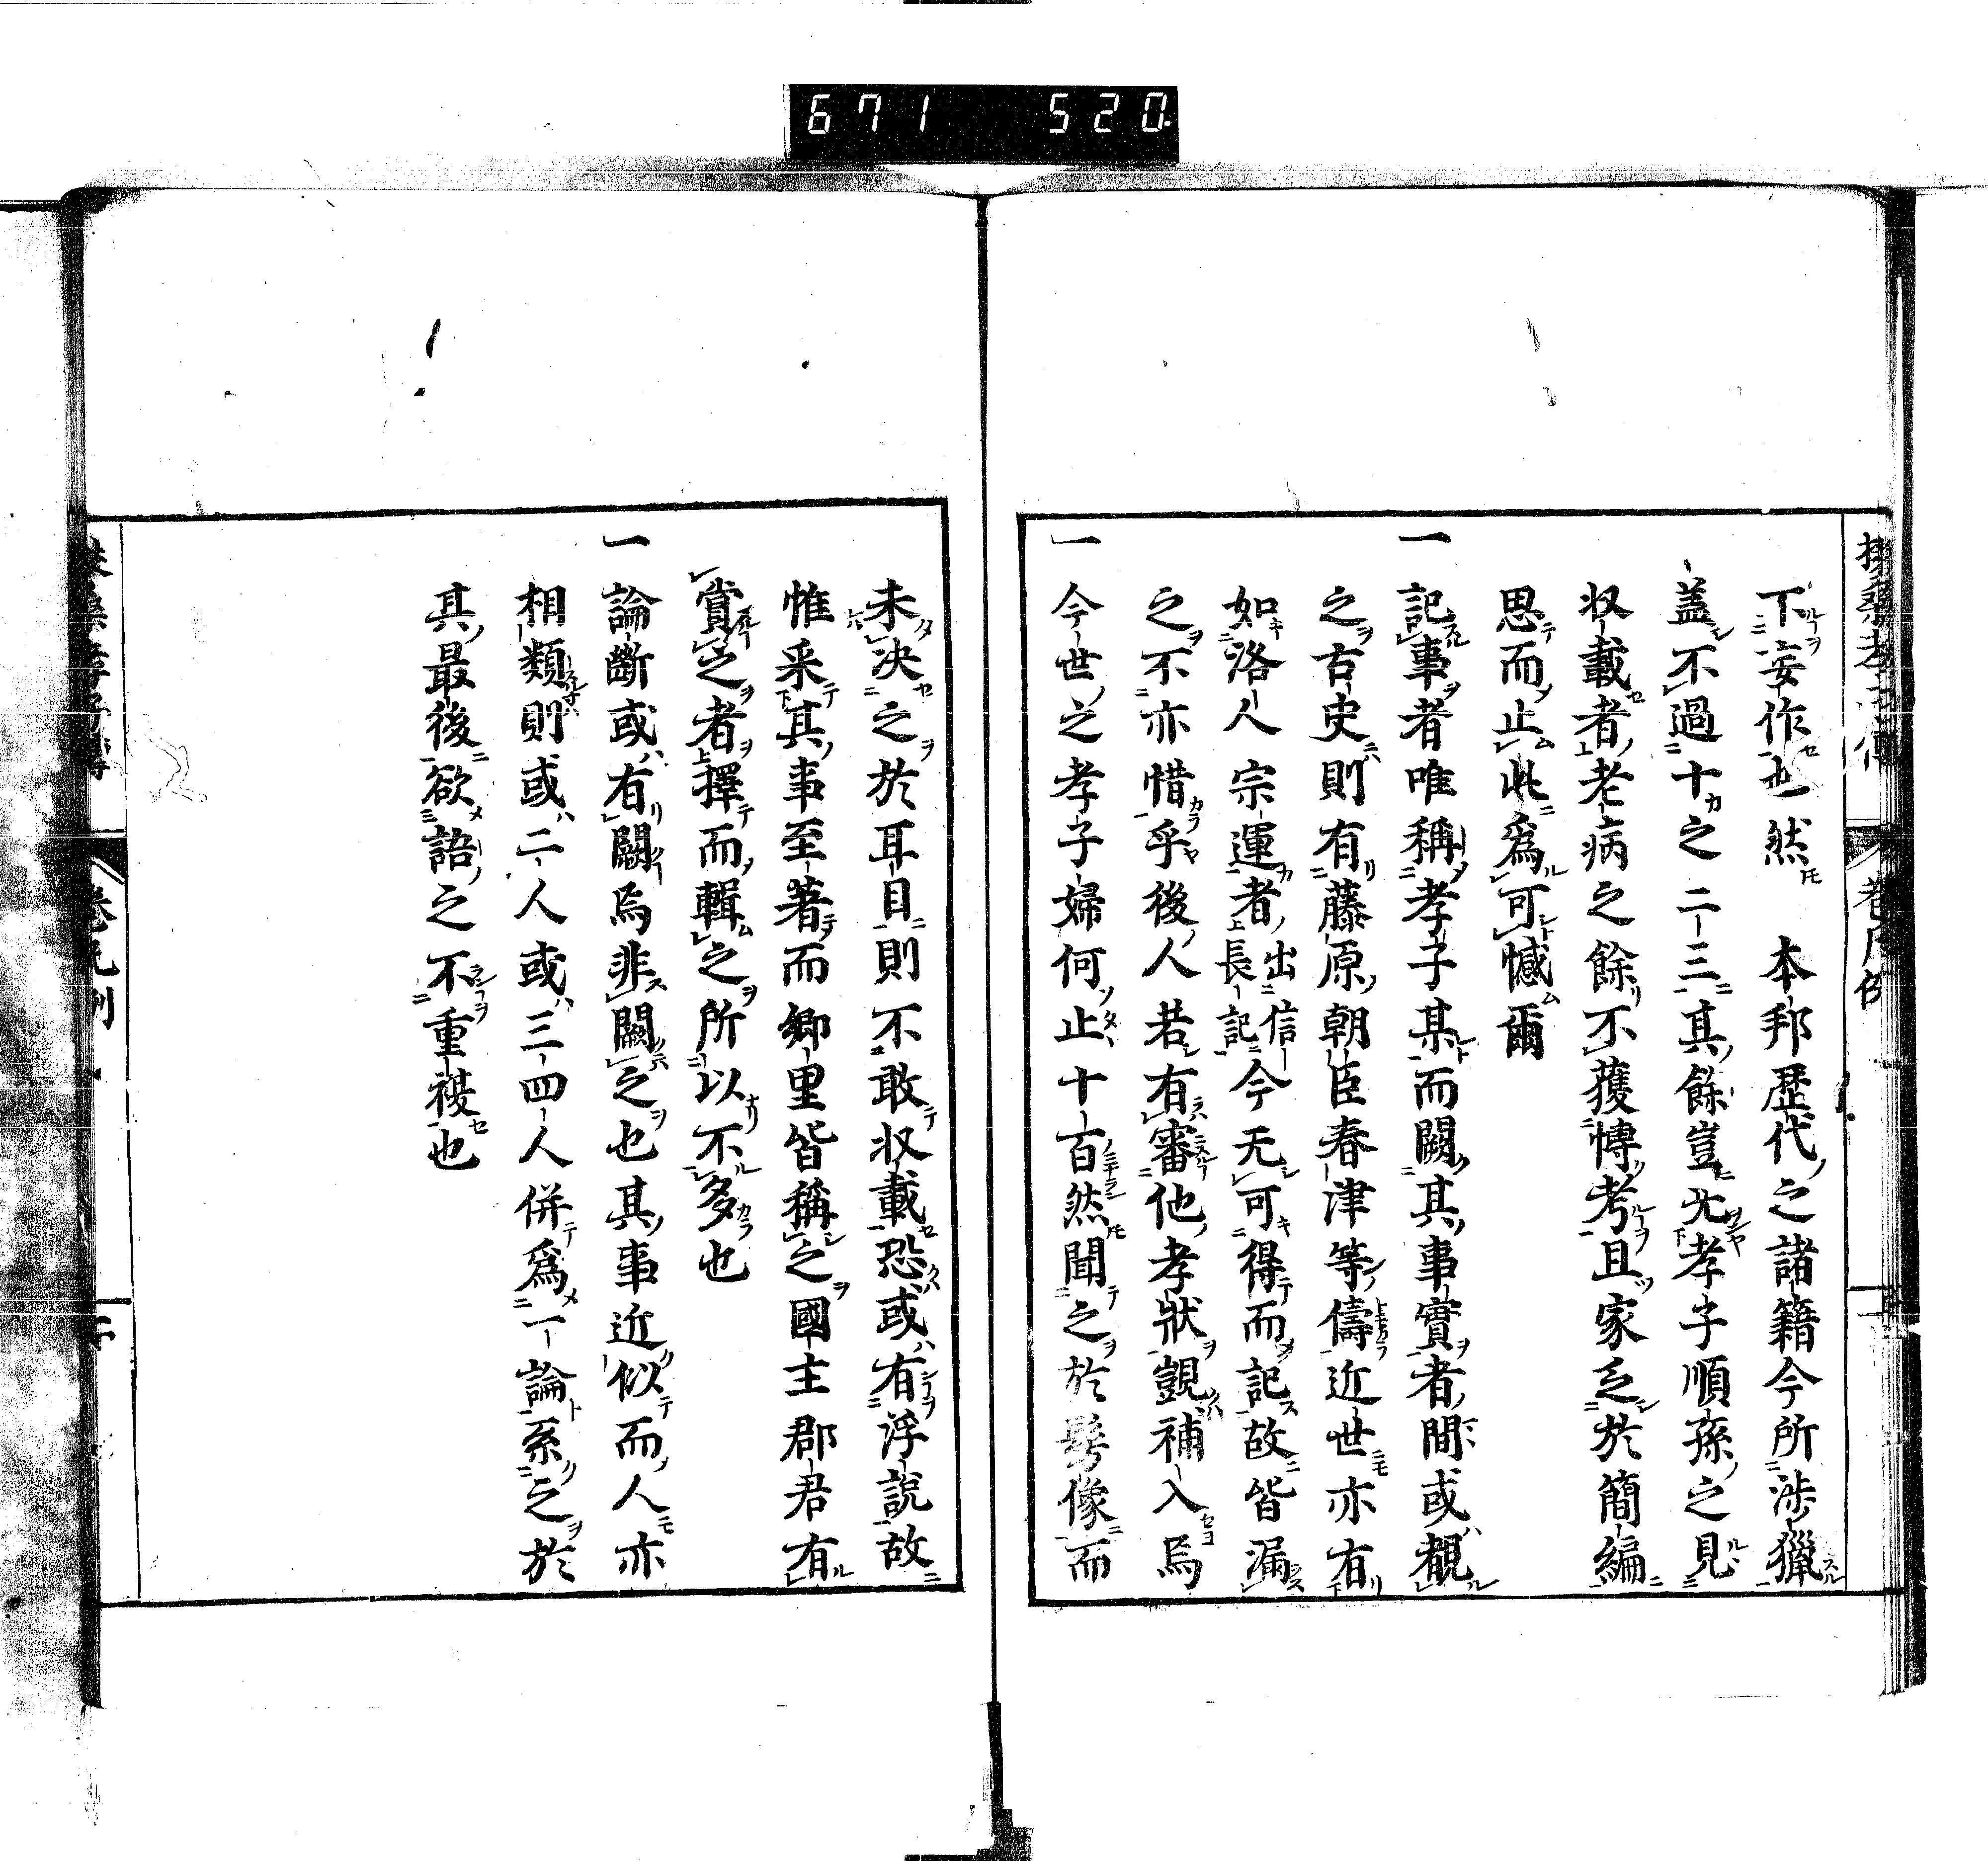 671 520
下妄作也然　本邦歴代之諸籍今所渉獵
蓋不過十之二三其餘豈无孝子順孫之見
収載者老病之餘不獲博考且家乏於簡編
思而止此爲可憾爾
一記事者唯稱孝子某而闕其事實者間或覩
之古史則有藤原朝臣春津等儔近世亦有
如洛人宗運者出信長記今无可得而記故皆漏
之不亦惜乎後人若有審他孝狀覬補入焉
一今世之孝子婦何止十百然聞之於髣像而
未決之於耳目則不敢収載恐或有浮説故
惟采其事至著而郷里皆稱之國主郡君有
賞之者擇而輯之所以不多也
一論斷或有闕焉非闕之也其事近似而人亦
相類則或二人或三四人併爲一論系之於
其最後欲語之不重複也